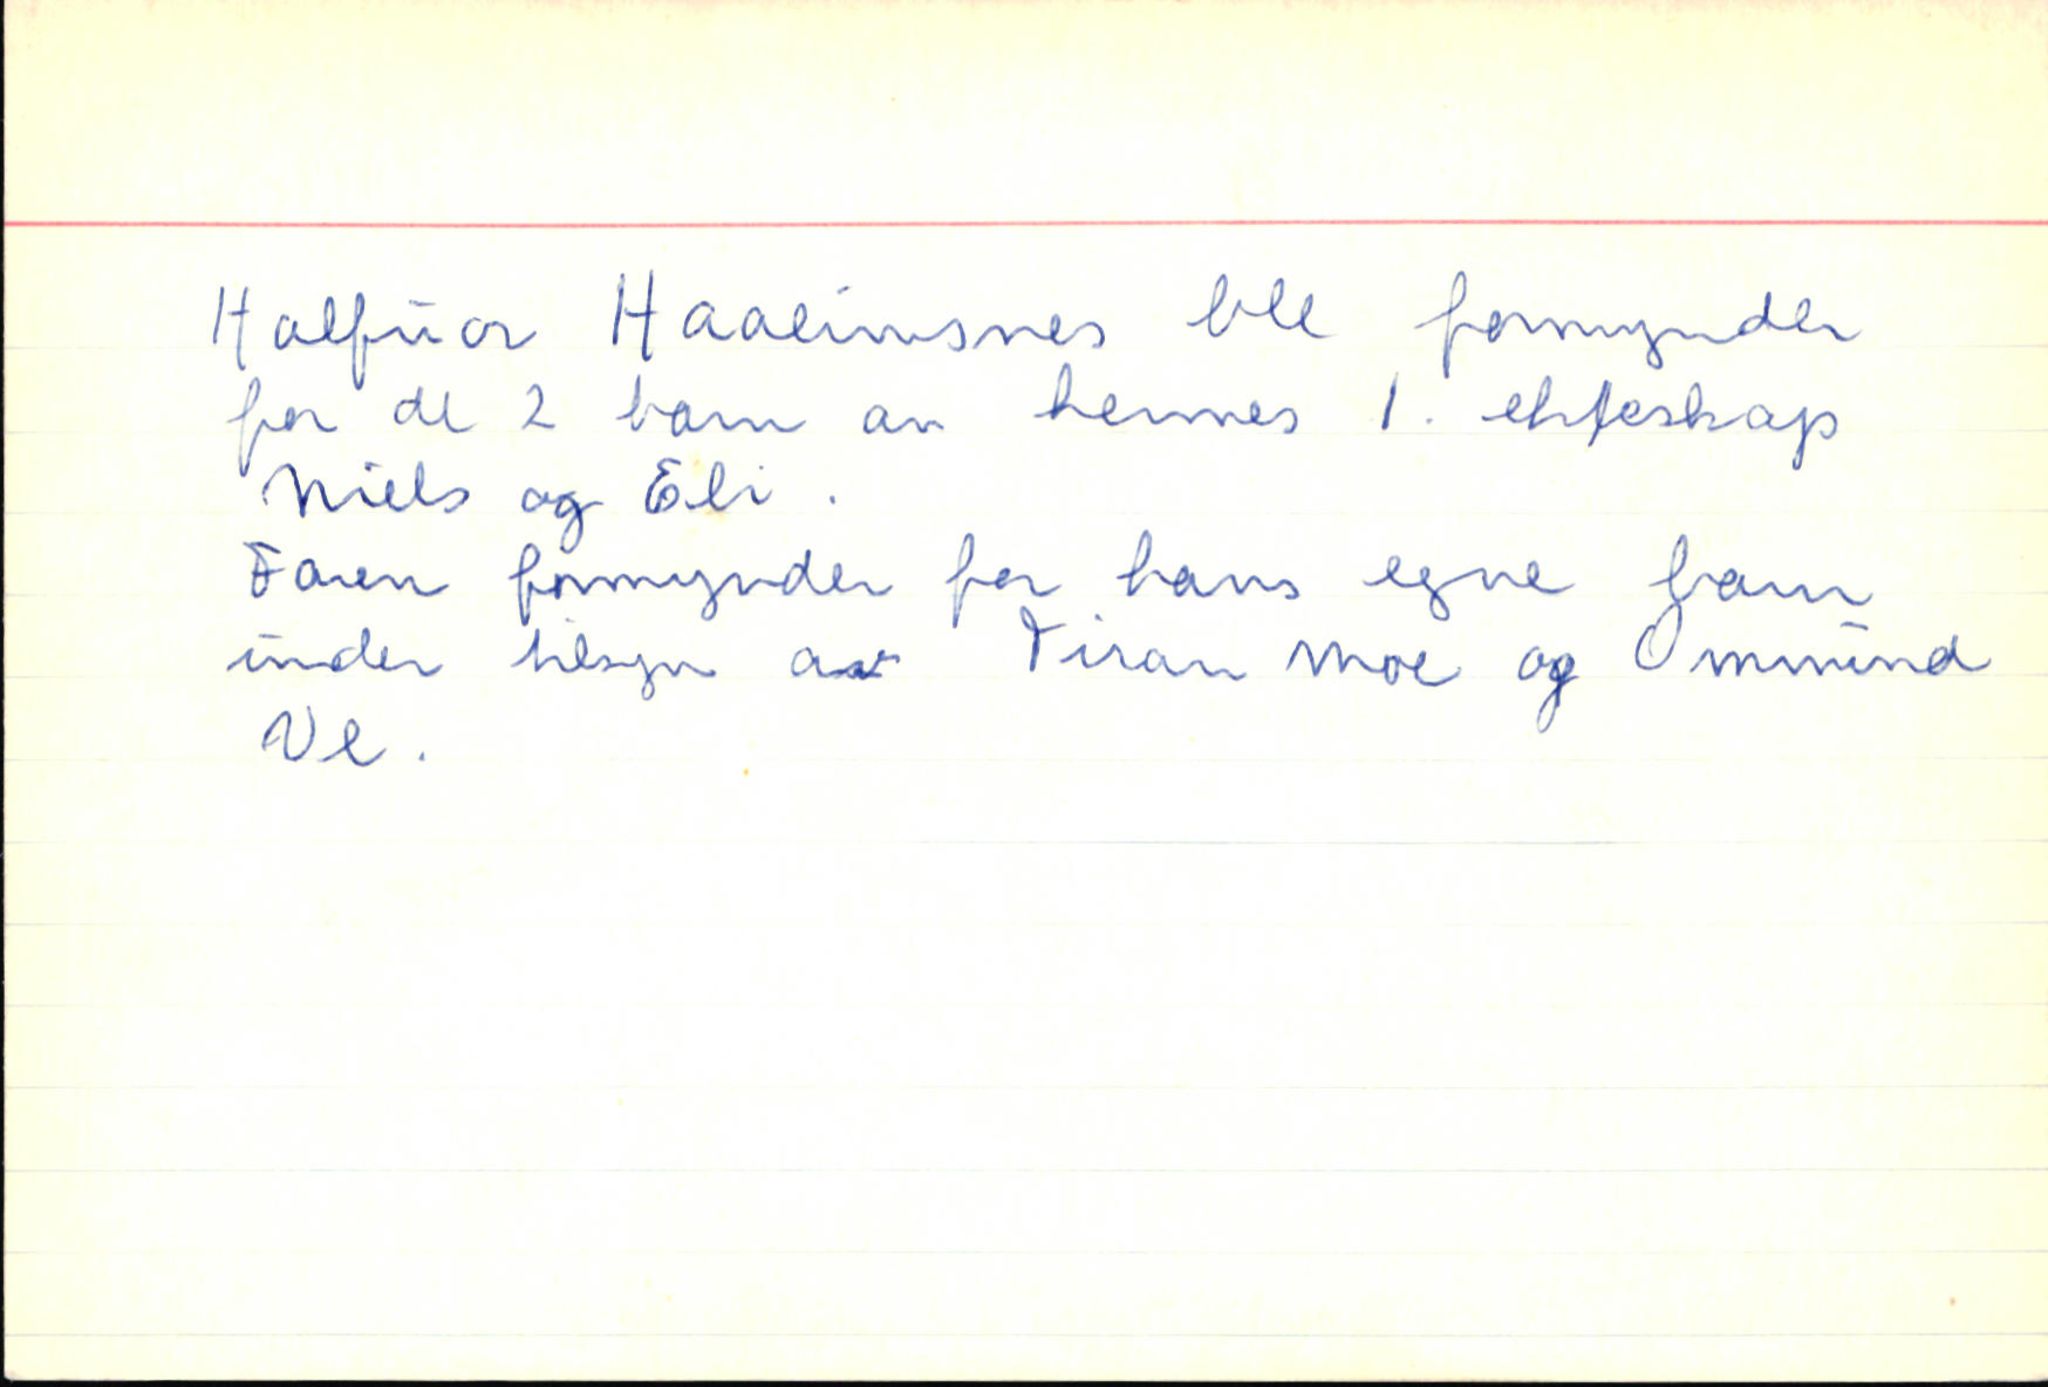 Halfuor Haaeimsnes ble formynder
for de 2 barn av hennes 1. ekteskap
Niels og Eli .
Faren formynder for hans egne barn
under tilsyn av Tiran Moe og Ommund
Ve .